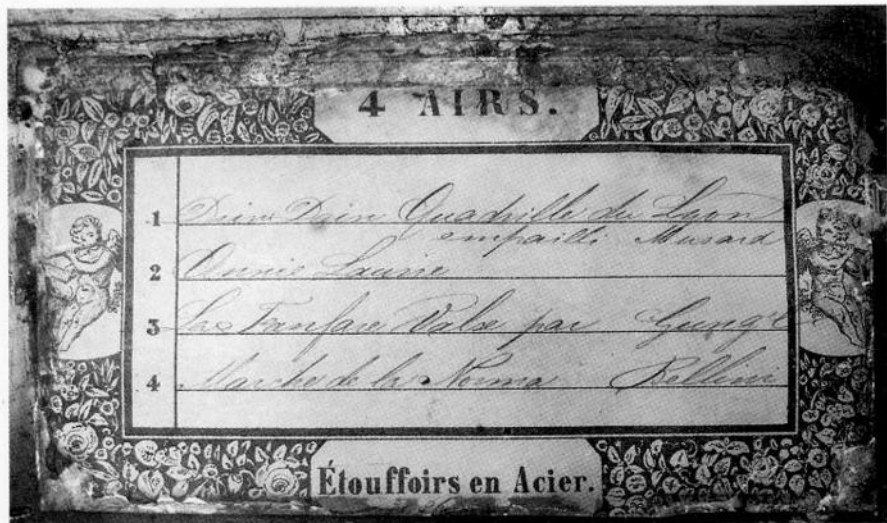 4 AIRS.
1 Quadrille du Lyon
empaillé Musard
2 Annie Laurie
3 La Fanfare Valse par Gung'l
4 Marche de la Norma Bellini
Étouffoirs en Acier.